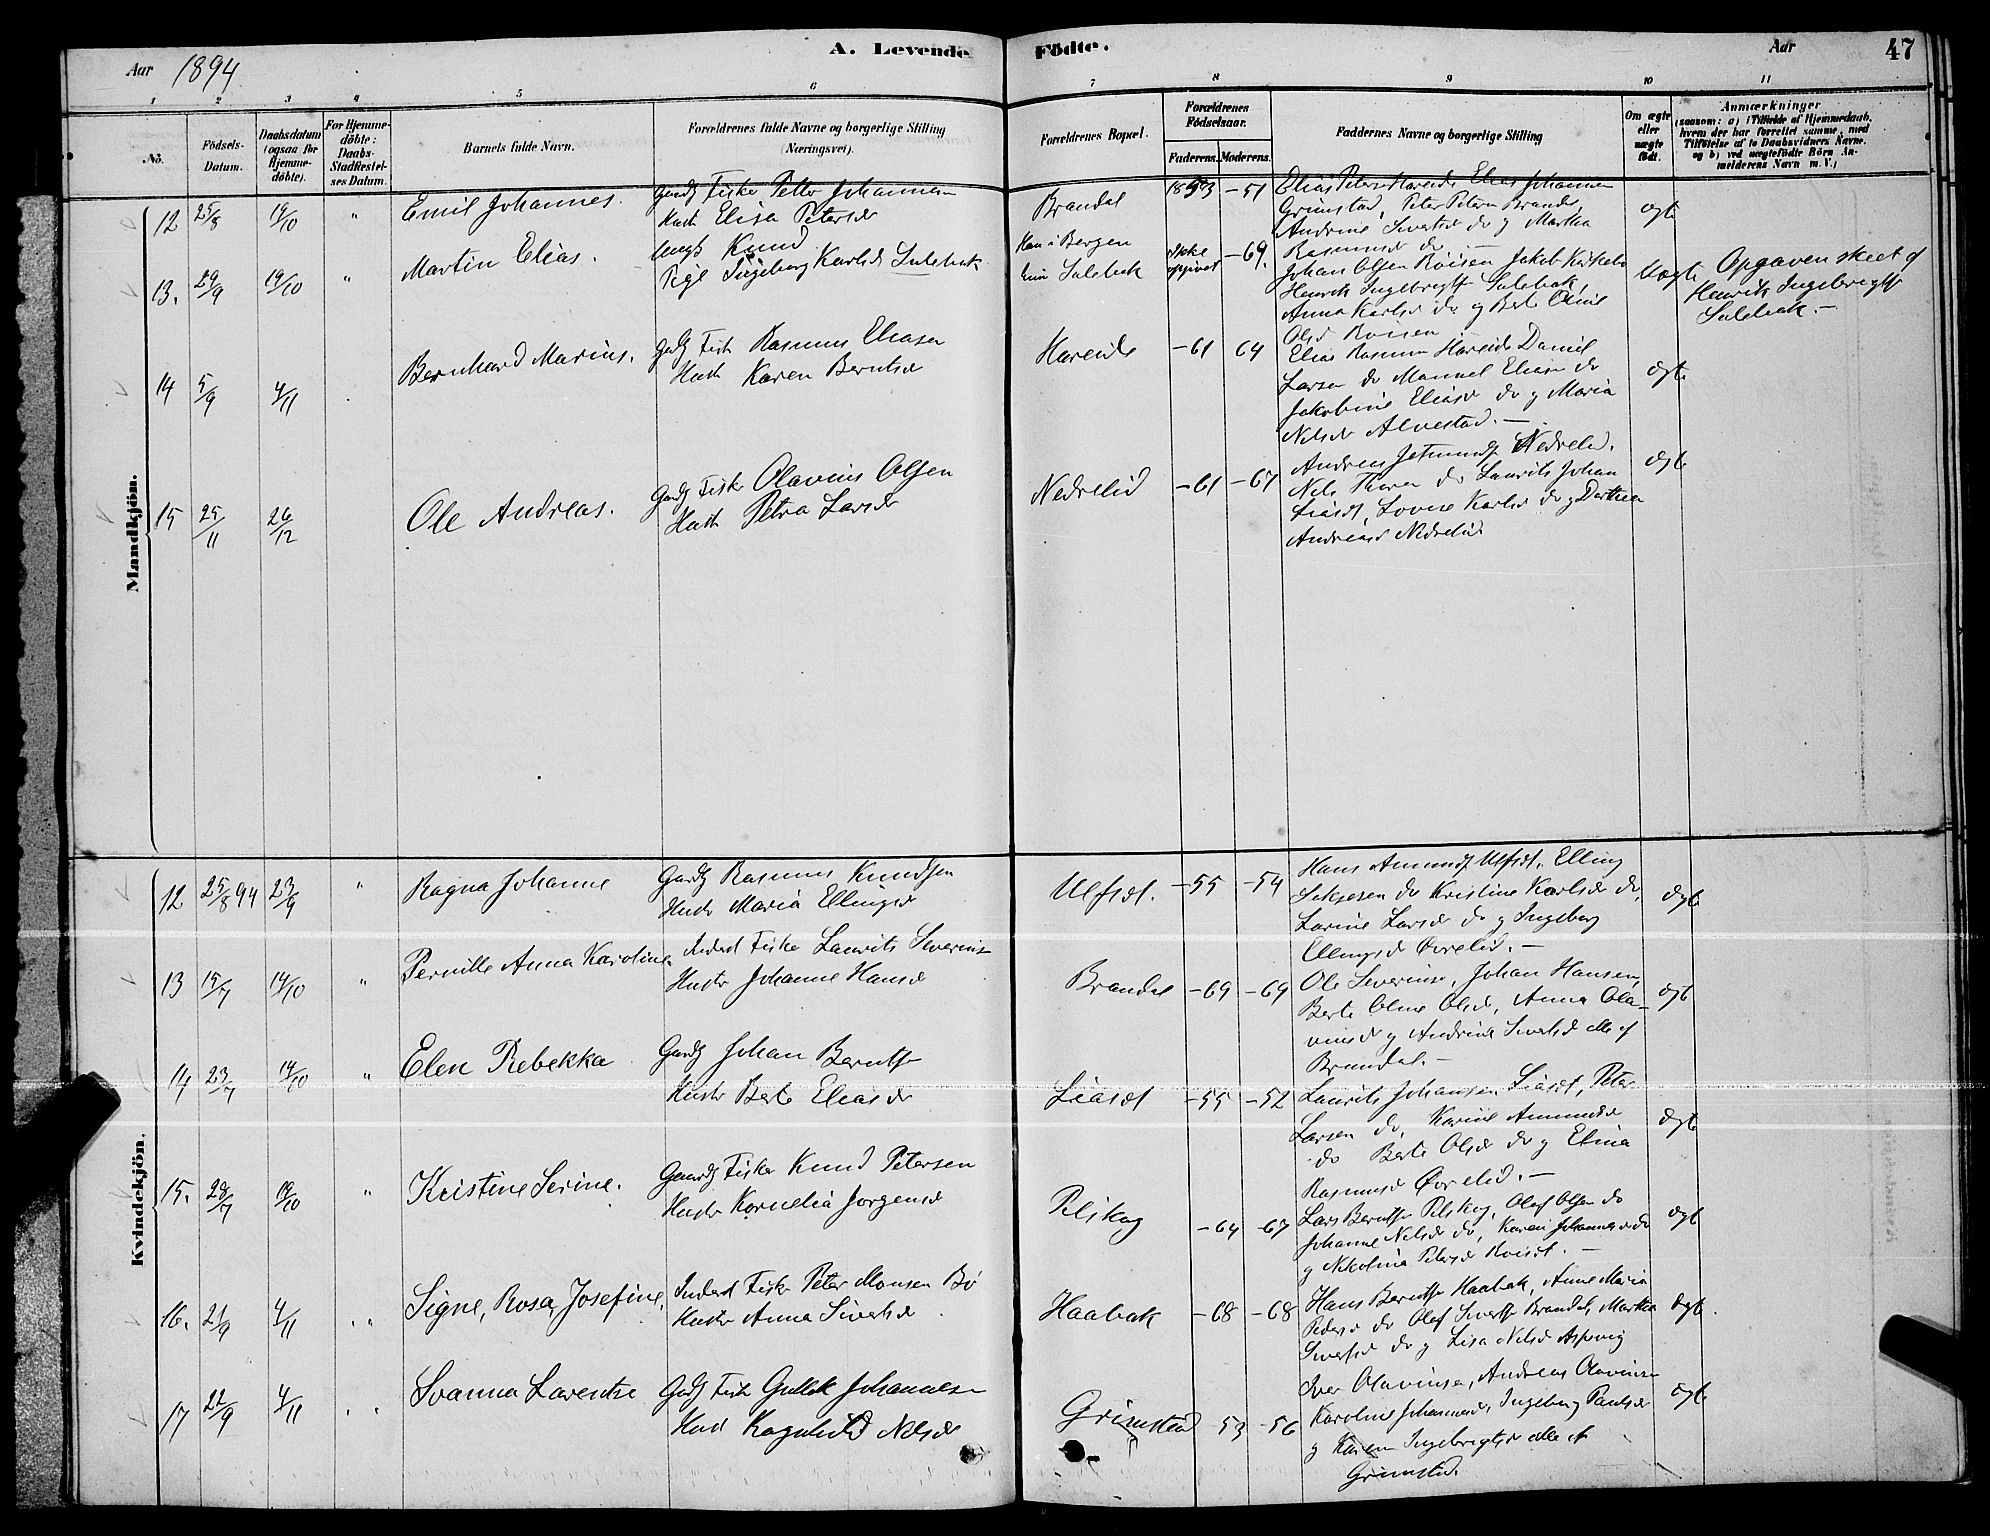 A. Levende Födte.
Aar 1894
Aar
47
1 2 3 4 5 6 7 8 9 10 11
No.
Födsels-
Datum.
Daabsdatum
(ogsaa for
Hjemme-
döbte).
For Hjemme-
döbte:
Daabs-
Stadfæstel-
ses Datum.
Barnets fulde Navn.
Forældrenes fulde Navne og borgerlige Stilling
(Næringsvei).
Forældrenes Bopæl.
Forældrenes
Födselsaar.
Faderens. Moderens.
Faddernes Navne og borgerlige Stilling
Om ægte
eller
uægte
födt.
Anmærkninger
(saasom: a) i Tilfælde af Hjemmedaab,
hvem der har forrettet samme, med
Tilföielse af to Daabsvidners Navne,
og b) ved uægtefödte Börn An-
melderens Navn m. V.)
Mandkjön.
12 25/8 14/10 " Emil Johannes.
Gdbr Fisker Petter Johannesen
Hustr Elisa Petersdr
Brandal 1853 -51
Elias Petersen Hareide Elias Johannesen
Grimstad, Peter Petersen Brandal,
Andrine Sivertsdr do og Martha
Rasmusdr do
ægte
13. 29/9 14/10 " Martin Elias.
Ungk Knud
Pige Ingeborg Karlsdr Sulebak
Han i Bergen
hun Sulebak
ikke
opgivet -69.
Johan Olsen Röisen Jakob Kirkebö
Henrik Ingebrigts Sulebak,
Anna Karlsdr do og Berte Oline
Olsd Röisen
Uægte
Opgaven skeet af
Henrik Ingebrigts
Sulebak.-
14 5/9 4/11 Bernhard Marius.
Gdbr Fisk Rasmus Eliasen
Hustr Karen Berntsdr
Hareide -61 64
Elias Rasmusen Hareide Daniel
Larsen do Manuel Eliasen do
Jakobine Eliasdr do og Maria
Nilsdr Alvestad.-
ægte
15 25/11 26/12 Ole Andreas.
Gdbr Fisk Olavius Olsen
Hustr Petra Larsdr
Nedrelid -61 -67
Andreas Jetmunds Nedrelid.
Nils Thoresen do Laurits Johan
Liaset, Lovise Karlsdr do og Dorthea
Andreasdr Nedrelid
ægte
Kvindekjön.
12 25/8 94 23/9 " Ragna Johanne
Gardbr Rasmus Knudsen
Hustr Maria Ellingsdr
Ulfset. -55 -54
Hans Amunds Ulfset, Elling
do Kristine Karlsdr do,
Larine Larsdr do og Ingeborg
Ellingsdr Övrelid.-
ægte
13 15/7 14/10 " Pernille Anna Karoline.
Inderst Fisker Laurits Severins
Hustr Johanne Hansdr
Brandal -69 -69
Ole Severins, Johan Hansen,
Berte Oline Olsdr, Anna Ola-
vinsdr og Andrine Sivertsdr alle af
Brandal.-
ægte
14 23/7 14/10 " Elen Rebekka
Gardbr Johan Bernts
Hustr Berte Eliasdr
Liaset -55 -52
Laurits Johansen Liaset, Peter
Larsen do, Karine Amundsdr
do Berte Olsdr do og Elina
Rasmusdr Övrelid.-
ægte
15. 28/7 14/10 " Kristine Serine.
Gaardbr Fisker Knud Petersen
Hustr Kornelia Jorgensdr
Pilskog -64 -67
Lars Bernts Pilskog, Olaf Olsen do
Johanne Nilsdr do, Karen Johannesdr do
og Nikolina Petersdr Röiset.-
ægte
16. 21/9 4/11 " Signe, Rosa, Josefine,
Inderst Fisk Peter Monsen Bö
Hustr Anna Sivertsdr
Haabak -68 -68
Hans Bernts Haabak, Anne Maria
Pedersdr do Olaf Siverts Brandal, Martha
Sivertsdr do og Lisa Nilsd Aspevig
ægte.
17 22/9 4/11 " Svanna Larentse
Gdbr Fisk Gullek Johannesen
Hust Ragnhild Nilsdr
Grimstad 53 -56
Iver Olavinsen, Andreas Olavinsen
Karoline Johannesdr, Ingeborg Paulsdr
og Karen Ingebrigtsdr alle af
Grimstad.
ægte